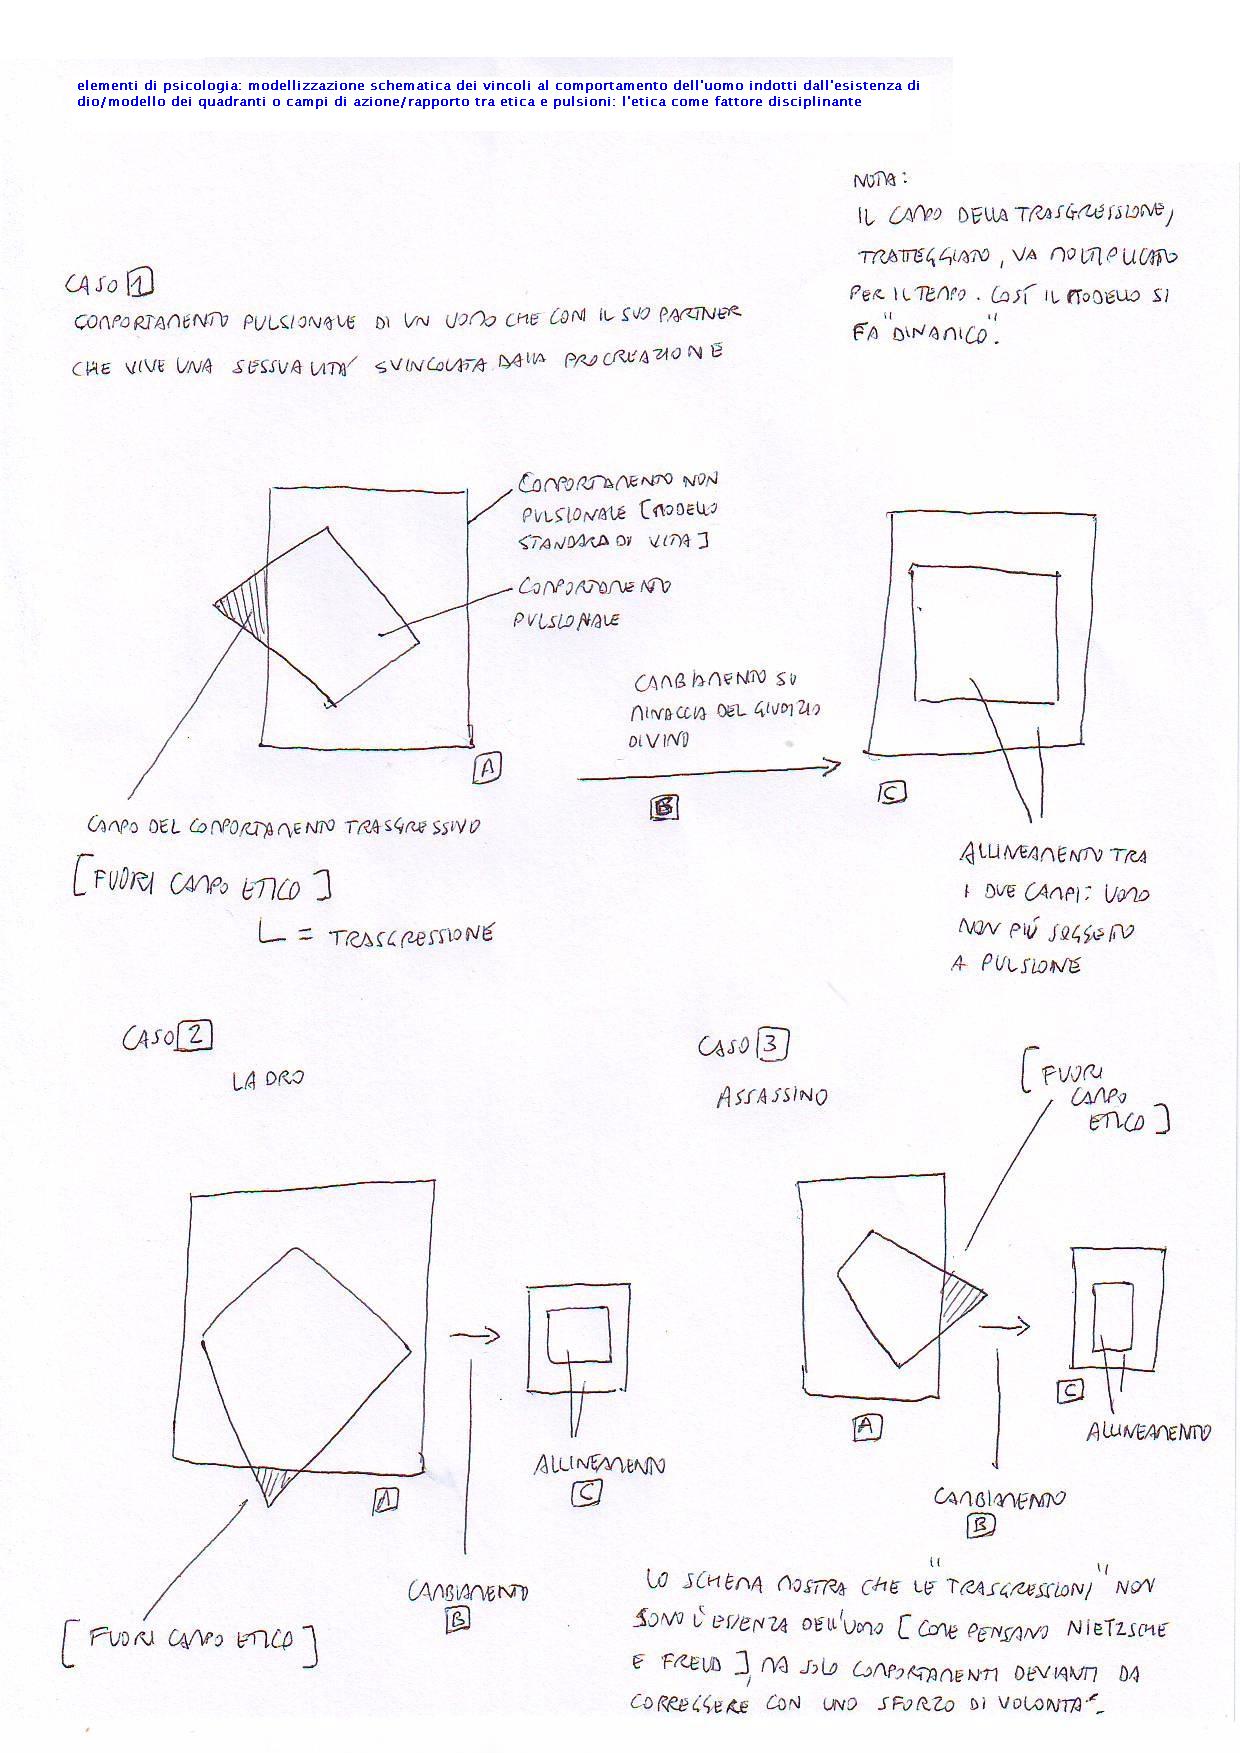 elementi di psicologia: modellizzazione schematica dei vincoli al comportamento dell'uomo indotti dall'esistenza di
dio/modello dei quadranti o campi di azione/rapporto tra etica e pulsioni: l'etica come fattore disciplinante
NOTA:
IL CAMPO DELLA TRASGRESSIONE,
TRATTEGGIATO, VA MOLTIPLICATO
PER IL TEMPO. COSÍ IL MODELLO SI
FA "DINAMICO".
CASO 1
COMPORTAMENTO PULSIONALE DI UN UOMO CHE CON IL SUO PARTNER
CHE VIVE UNA SESSUALITA' SVINCOLATA DALLA PROCREAZIONE
COMPORTAMENTO NON
PULSIONALE [MODELLO
STANDARD DI VITA]
COMPORTAMENTO
PULSIONALE
CAMBIAMENTO SU
MINACCIA DEL GIUDIZIO
DIVINO
A
B
C
CAMPO DEL COMPORTAMENTO TRASGRESSIVO
[FUORI CAMPO ETICO]
L = TRASGRESSIONE
ALLINEAMENTO TRA
I DUE CAMPI: UOMO
NON PIÚ SOGGETTO
A PULSIONE
CASO 2
LADRO
CASO 3
ASSASSINO
[FUORI
CAMPO
ETICO]
A
ALLINEAMENTO
C
CAMBIAMENTO
B
[FUORI CAMPO ETICO]
A
C
ALLINEAMENTO
CAMBIAMENTO
B
LO SCHEMA MOSTRA CHE LE "TRASGRESSIONI" NON
SONO L'ESSENZA DELL'UOMO [COME PENSANO NIETZSCHE
E FREUD], MA SOLO COMPORTAMENTI DEVIANTI DA
CORREGGERE CON UNO SFORZO DI VOLONTA'.